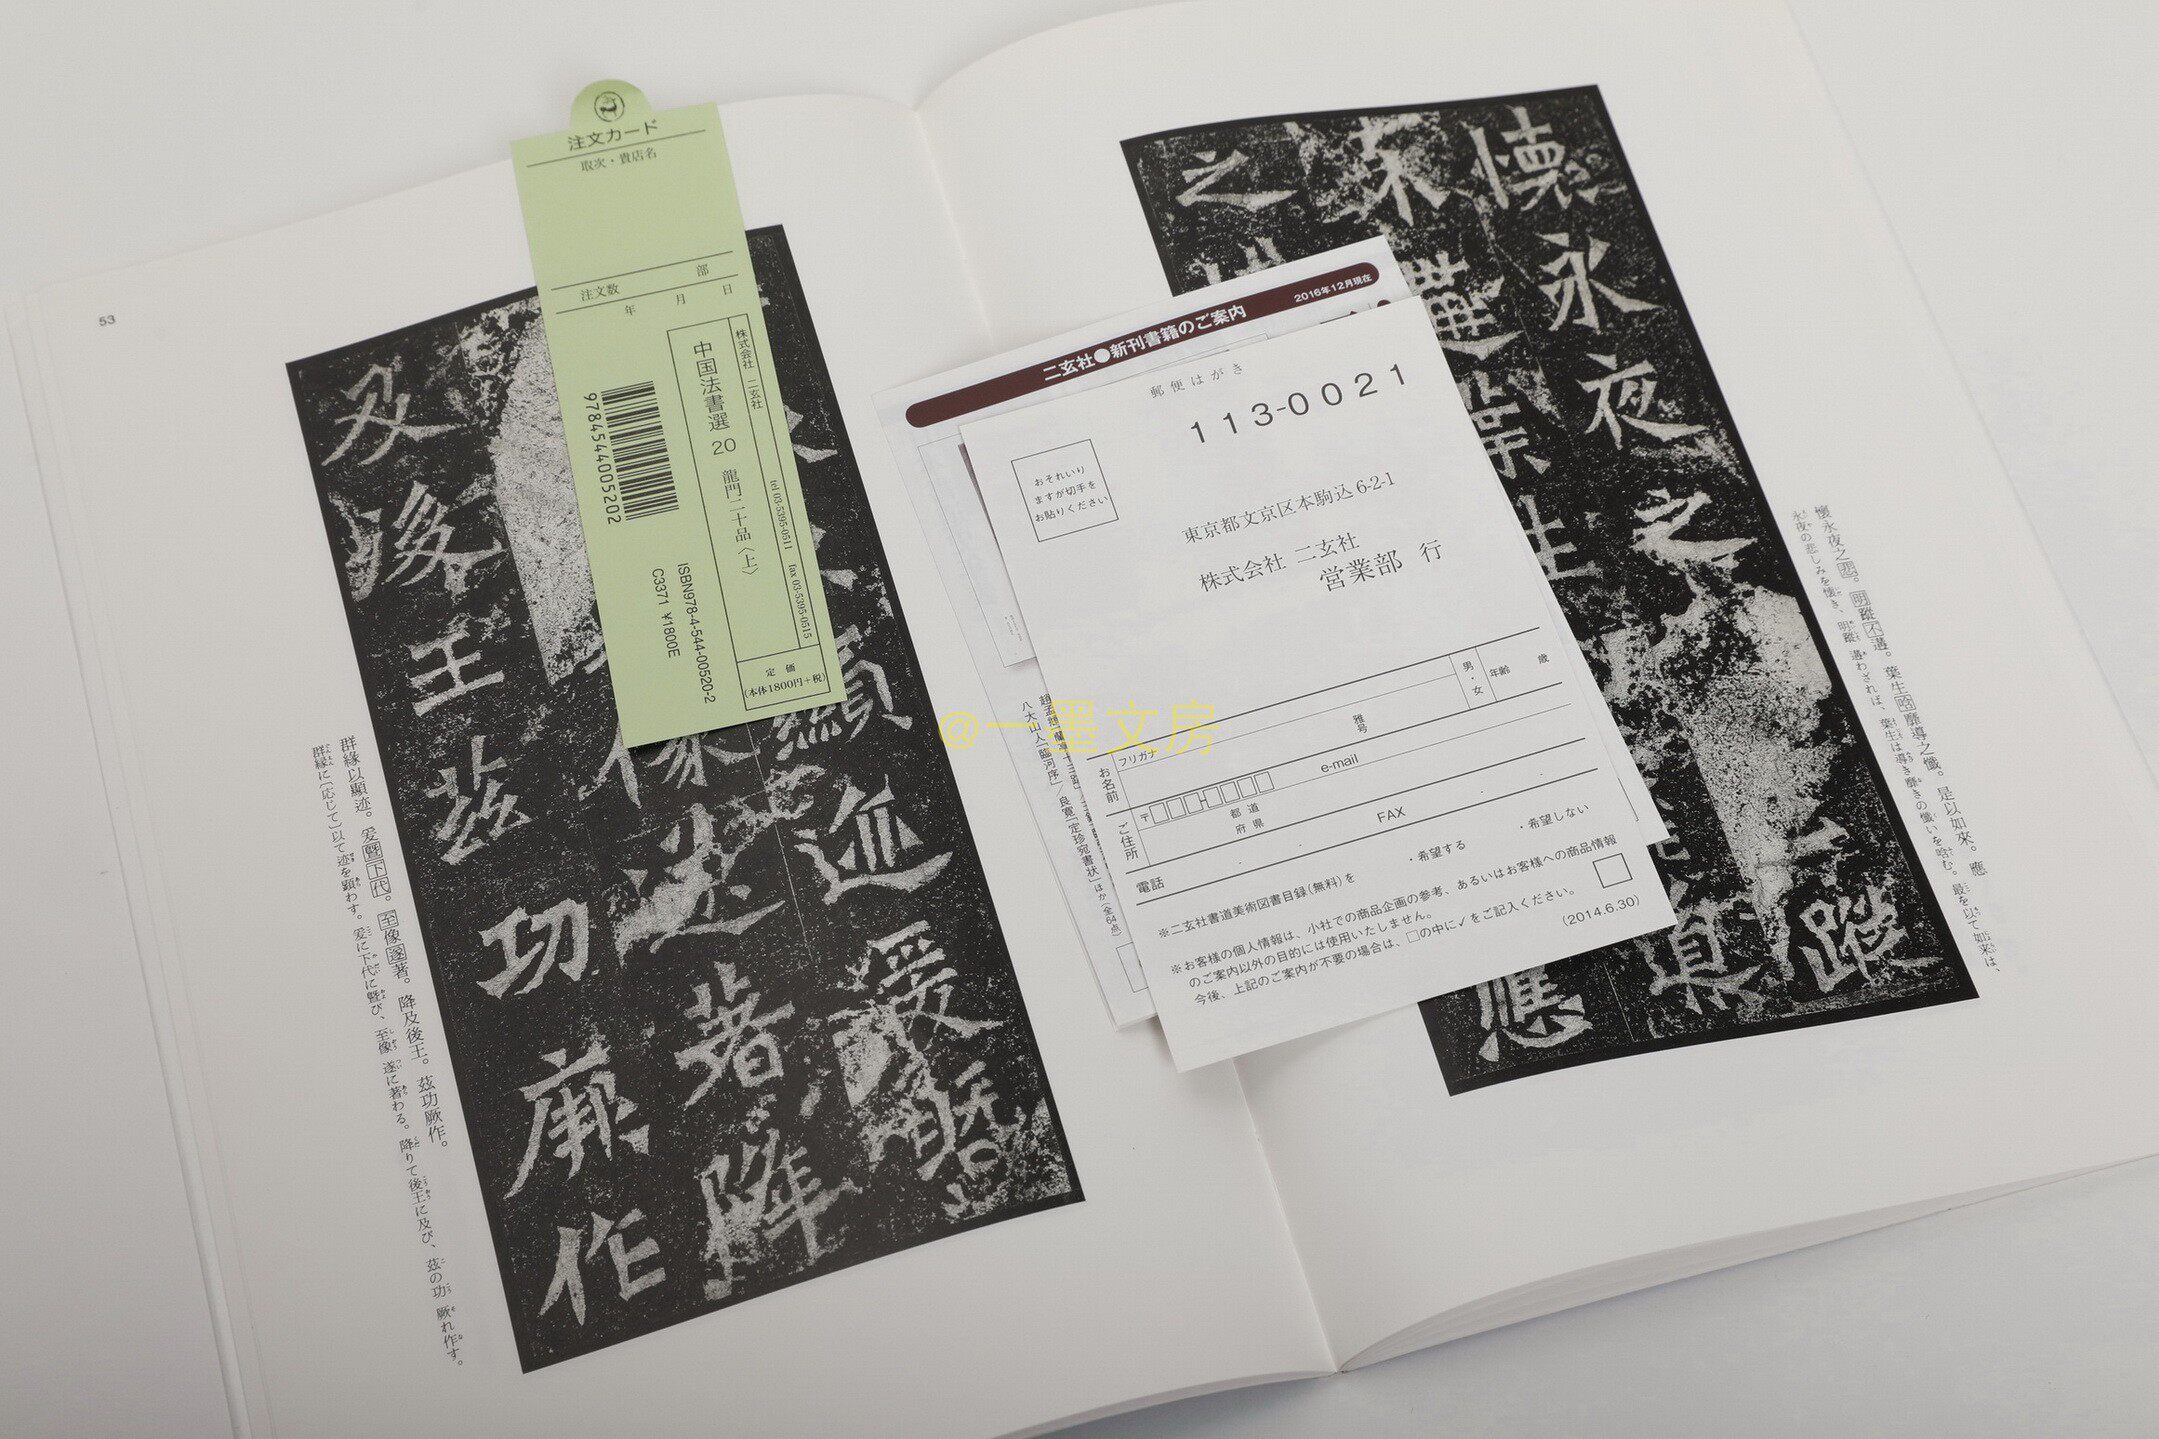 53
注文カード
取次・貴店名
部
注文数
年 月 日
株式会社 二玄社
tel 03-5395-0511 fax 03-5395-0515
中国法書選 20 龍門二十品〈上〉
定 価
(本体1800円+税)
9784544005202
ISBN978-4-544-00520-2
C3371 ¥1800E
二玄社●新刊書籍のご案内
2016年12月現在
郵便はがき
113-0021
おそれいり
ますが切手を
お貼りください
東京都文京区本駒込6-2-1
株式会社 二玄社
営業部 行
男・女
年齢 歳
フリガナ
雅号
お名前
e-mail
〒
都 道
府 県
ご住所
FAX
電話
・希望する
・希望しない
※二玄社書道美術図書目録(無料)を
※お客様の個人情報は、小社での商品企画の参考、あるいはお客様への商品情報
のご案内以外の目的には使用いたしません。
今後、上記のご案内が不要の場合は、□の中に✓をご記入ください。
(2014.6.30)
八大山人「臨河序」/良寛「定珍宛書状」ほか(全64点)
@一墨文房
懐永夜之
蹤
之
應
顯迹爰曁
像遂著降
及後王茲功厥作
懷永夜之悲。明蹤不遘。葉生含靡導之懺。是以如來。應
永夜の悲しみを懐き、明蹤 遘わざれば、葉生は導き靡きの懺いを含む。最を以て如来は、
群緣以顯迹。爰曁下代。至像遂著。降及後王。茲功厥作。
群縁に〔応じて〕以て迹を顕わす。爰に下代に曁び、至像 遂に著わる。降りて後王に及び、茲の功 厥れ作す。